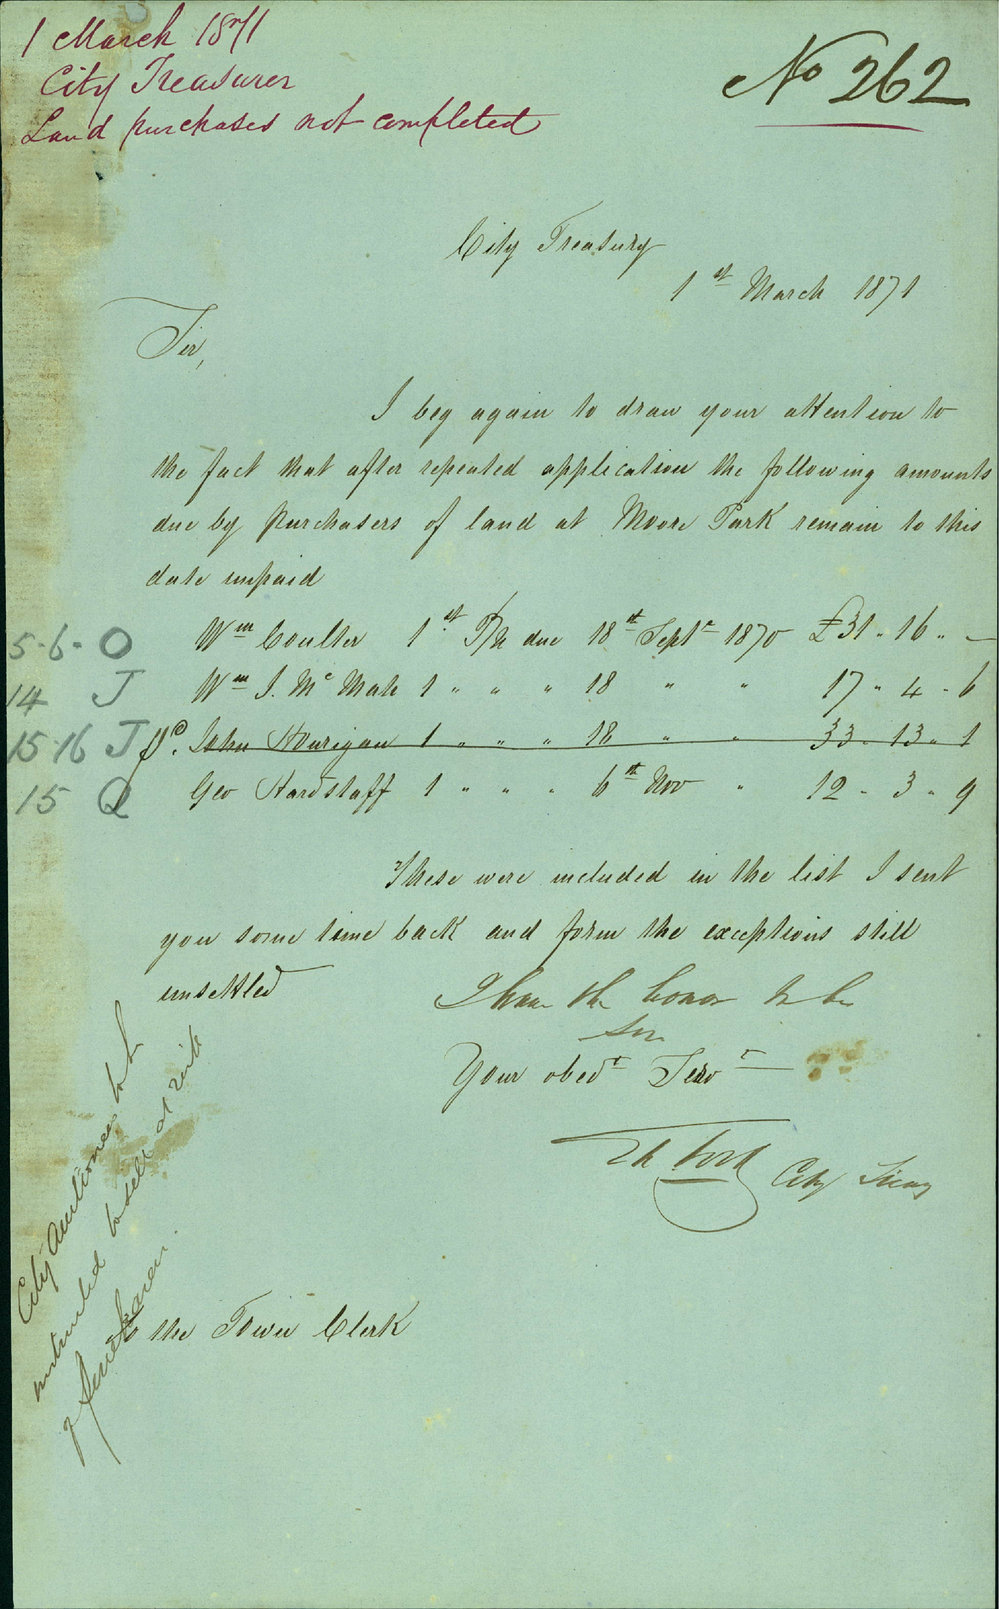 1 March 1871
City Treasurer
Land purchases not completed
No 262
City Treasury
1st March 1871
Sir,
I beg again to draw your attention to
the fact that after repeated application the following amounts
due by purchasers of land at Moore Park remain to this
date unpaid
5-6- O Wm Coulter 1st P/N due 18th Septr 1870 £31 " 16 " –
14 J Wm J. McMah 1 " " " 18 " " 17 " 4 " 6
15 16 J Pd. John Hourigan 1 " " " 18 " " 33 " 13 " 1
15 Q Geo Hardstaff 1 " " " 6th Nov " 12 " 3 " 9
These were included in the list I sent
you some time back and form the exceptions still
unsettled
I have the honor to be
Sir
Your obedt Servt
City Treas
City Auctioneer to be
instructed to sell at risk
of purchaser.
To the Town Clerk